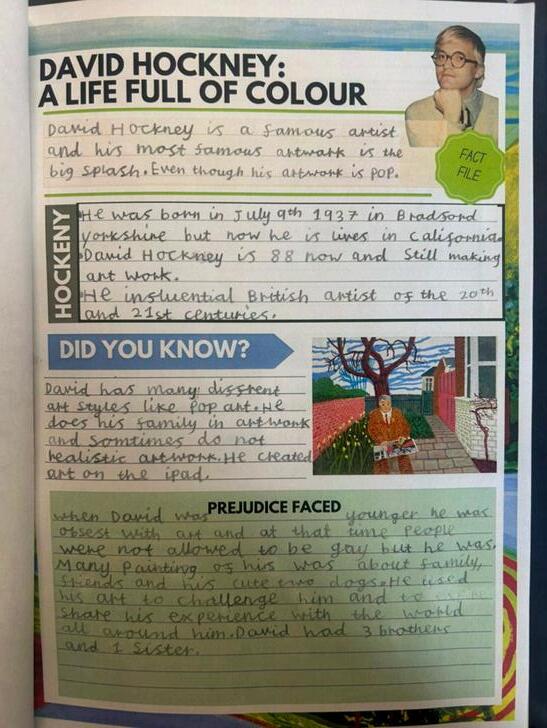 DAVID HOCKNEY:
A LIFE FULL OF COLOUR
David Hockney is a famous artist
and his most famous artwark is the
big splash. Even though his artwork is POP.
FACT
FILE
HOCKENY
He was born in July 9th 1937 in Bradford
yorkshire but now he is lives in california.
David Hockney is 88 now and Still making
art work.
He influential British artist of the 20th
and 21st centuries.
DID YOU KNOW?
David has many diffrent
art styles like pop art. He
does his family in artwork
and somtimes do not
realistic artwork. He created
art on the ipad.
PREJUDICE FACED
when David was younger he was
obsest with art and at that time people
were not allowed to be gay but he was.
Many Painting of his was about family,
friends and his cute two dogs. He used
his art to challenge him and to
share his experience with the world
all around him. David had 3 brothers
and 1 Sister.